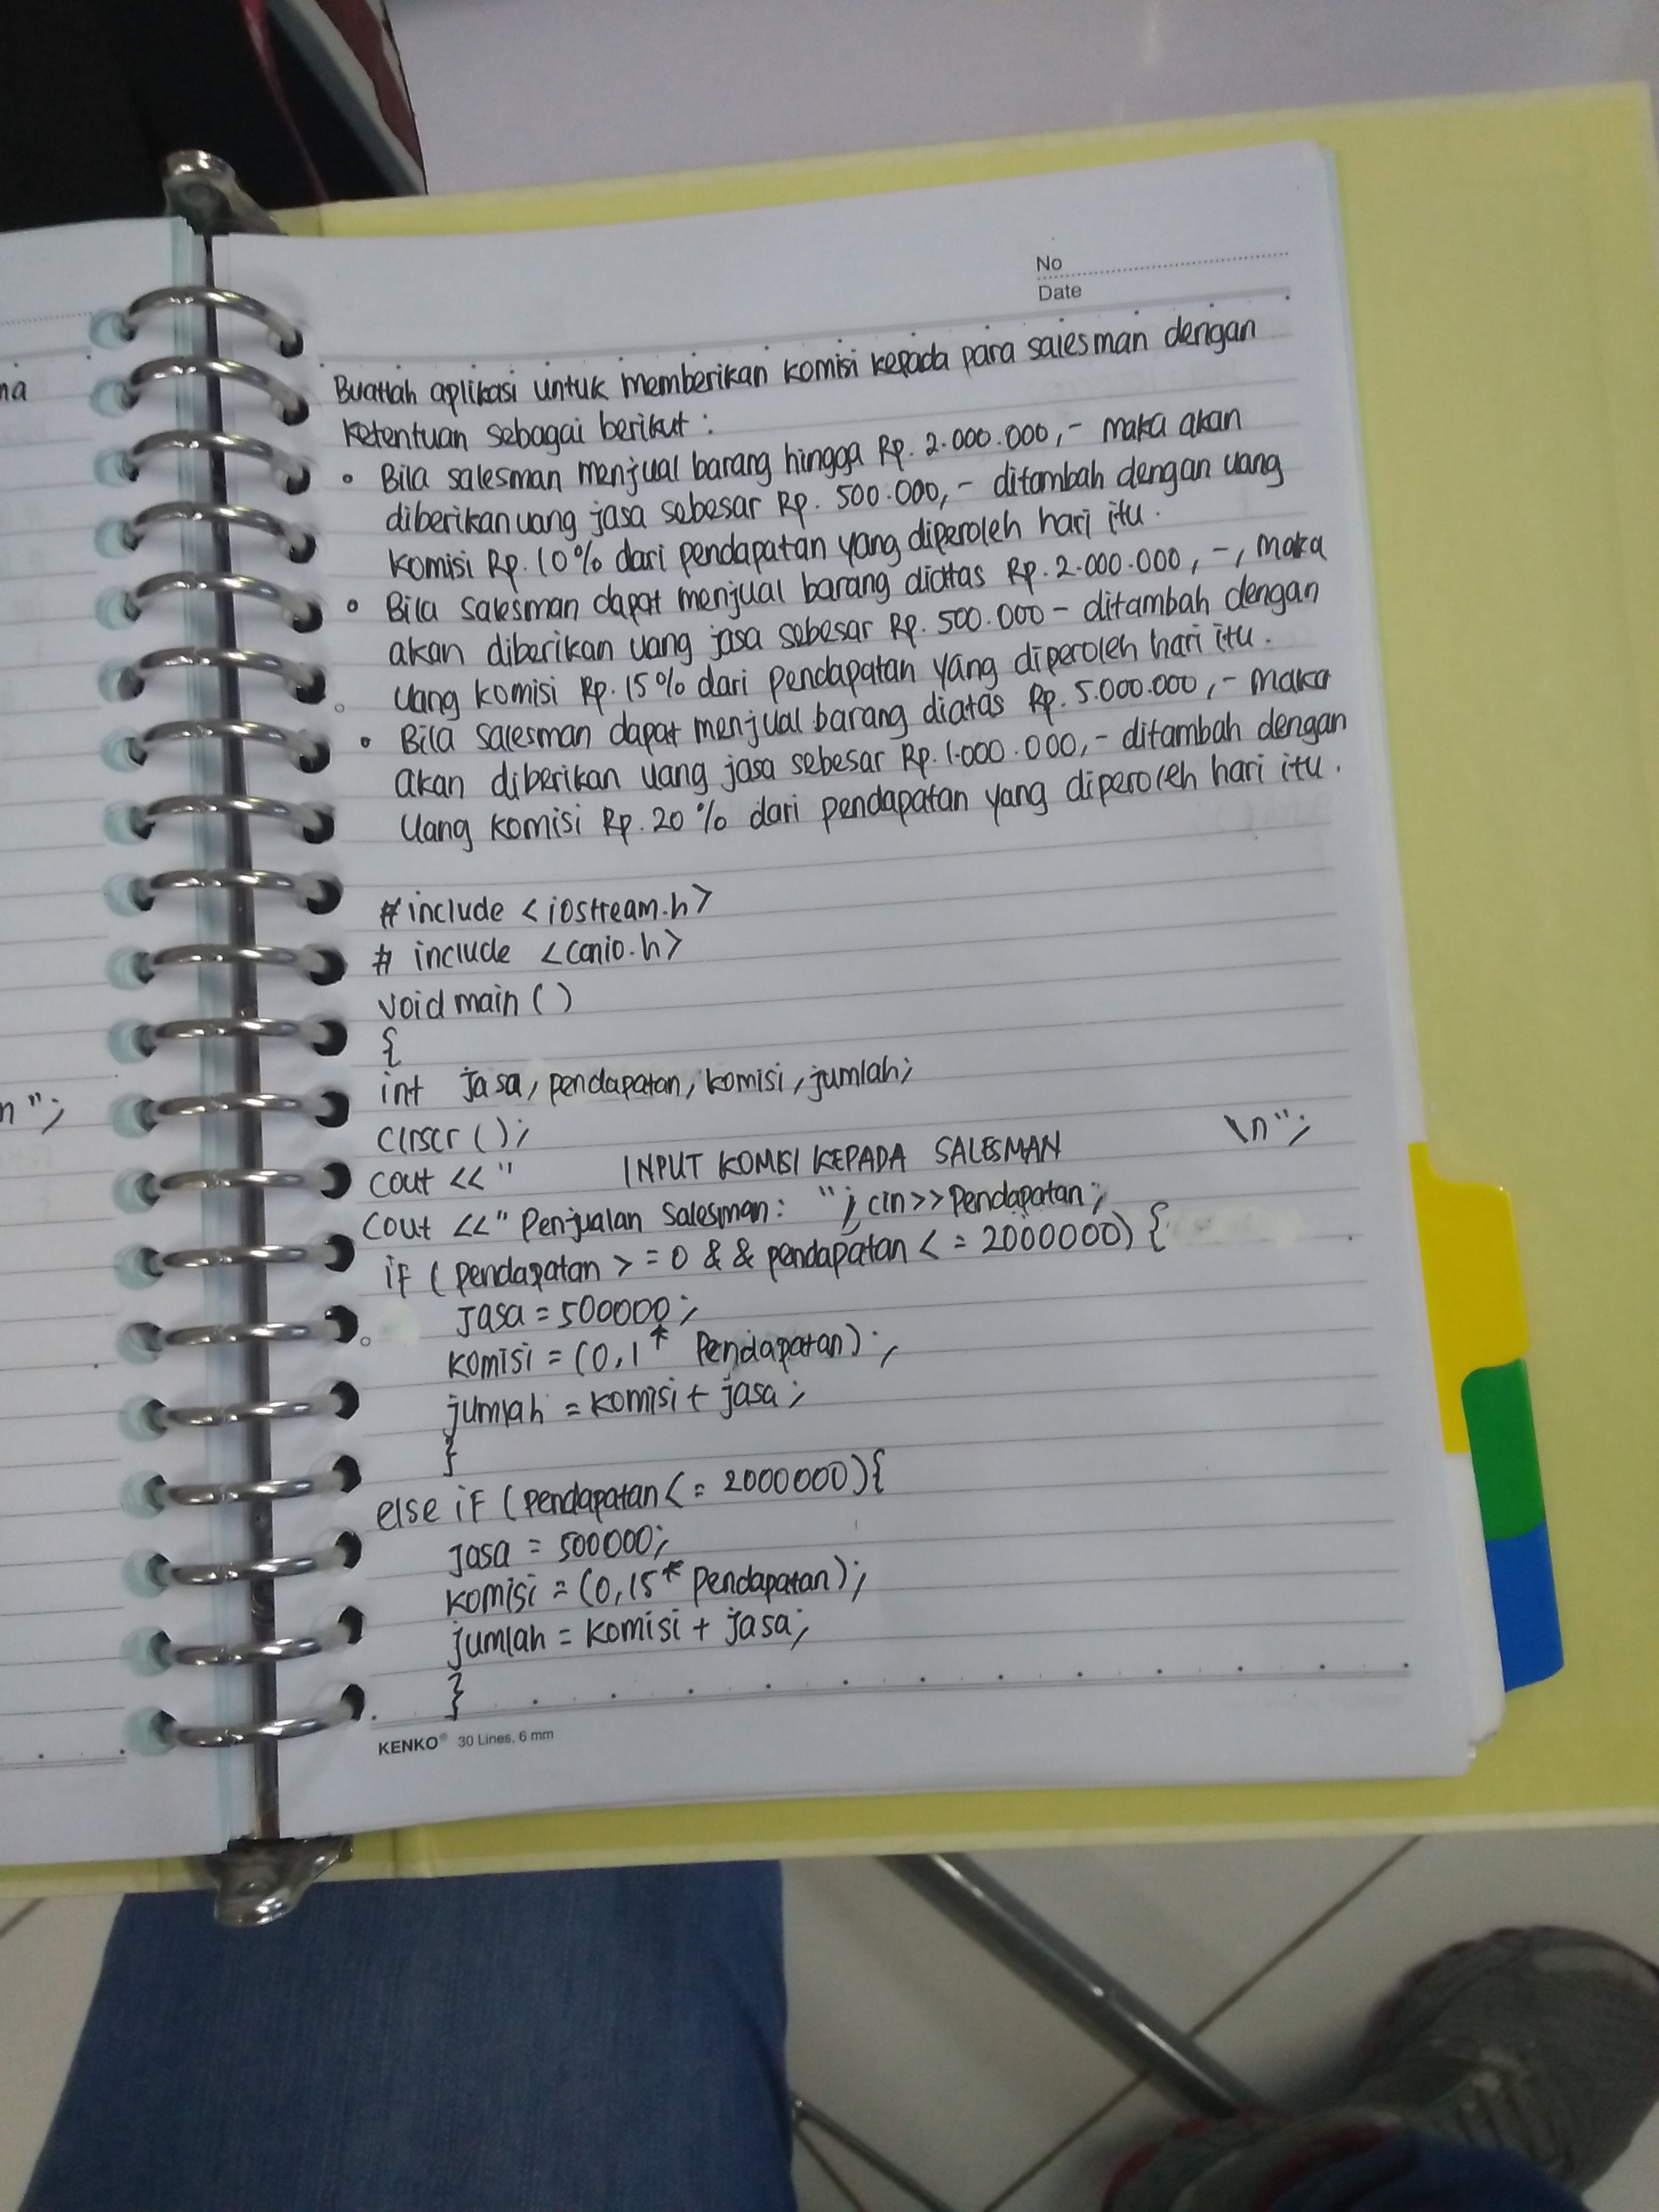 na
n";
No
Date
Buatlah aplikasi untuk memberikan komisi kepada para salesman dengan
ketentuan sebagai berikut :
• Bila salesman menjual barang hingga Rp. 2.000.000,- maka akan
diberikan uang jasa sebesar Rp. 500.000,- ditambah dengan uang
komisi Rp. 10% dari pendapatan yang diperoleh hari itu.
• Bila salesman dapat menjual barang diattas Rp. 2.000.000,-, maka
akan diberikan uang jasa sebesar Rp. 500.000 - ditambah dengan
uang komisi Rp. 15% dari pendapatan yang diperoleh hari itu.
• Bila salesman dapat menjual barang diatas Rp. 5.000.000,- maka
akan diberikan uang jasa sebesar Rp. 1.000.000,- ditambah dengan
uang komisi Rp. 20% dari pendapatan yang diperoleh hari itu.
# include <iostream.h>
# include <conio.h>
void main ()
{
int jasa, pendapatan, komisi, jumlah;
clrscr ();
cout <<" INPUT KOMISI KEPADA SALESMAN \n";
cout <<" Penjualan Salesman: "; cin>>Pendapatan;
if (pendapatan >=0 && pendapatan <= 2000000) {
Jasa = 500000;
komisi = (0,1 * Pendapatan);
jumlah = komisi + jasa;
}
else if (pendapatan <= 2000000){
Jasa = 500000;
komisi = (0,15 * pendapatan);
jumlah = komisi + jasa;
}
KENKO® 30 Lines, 6 mm